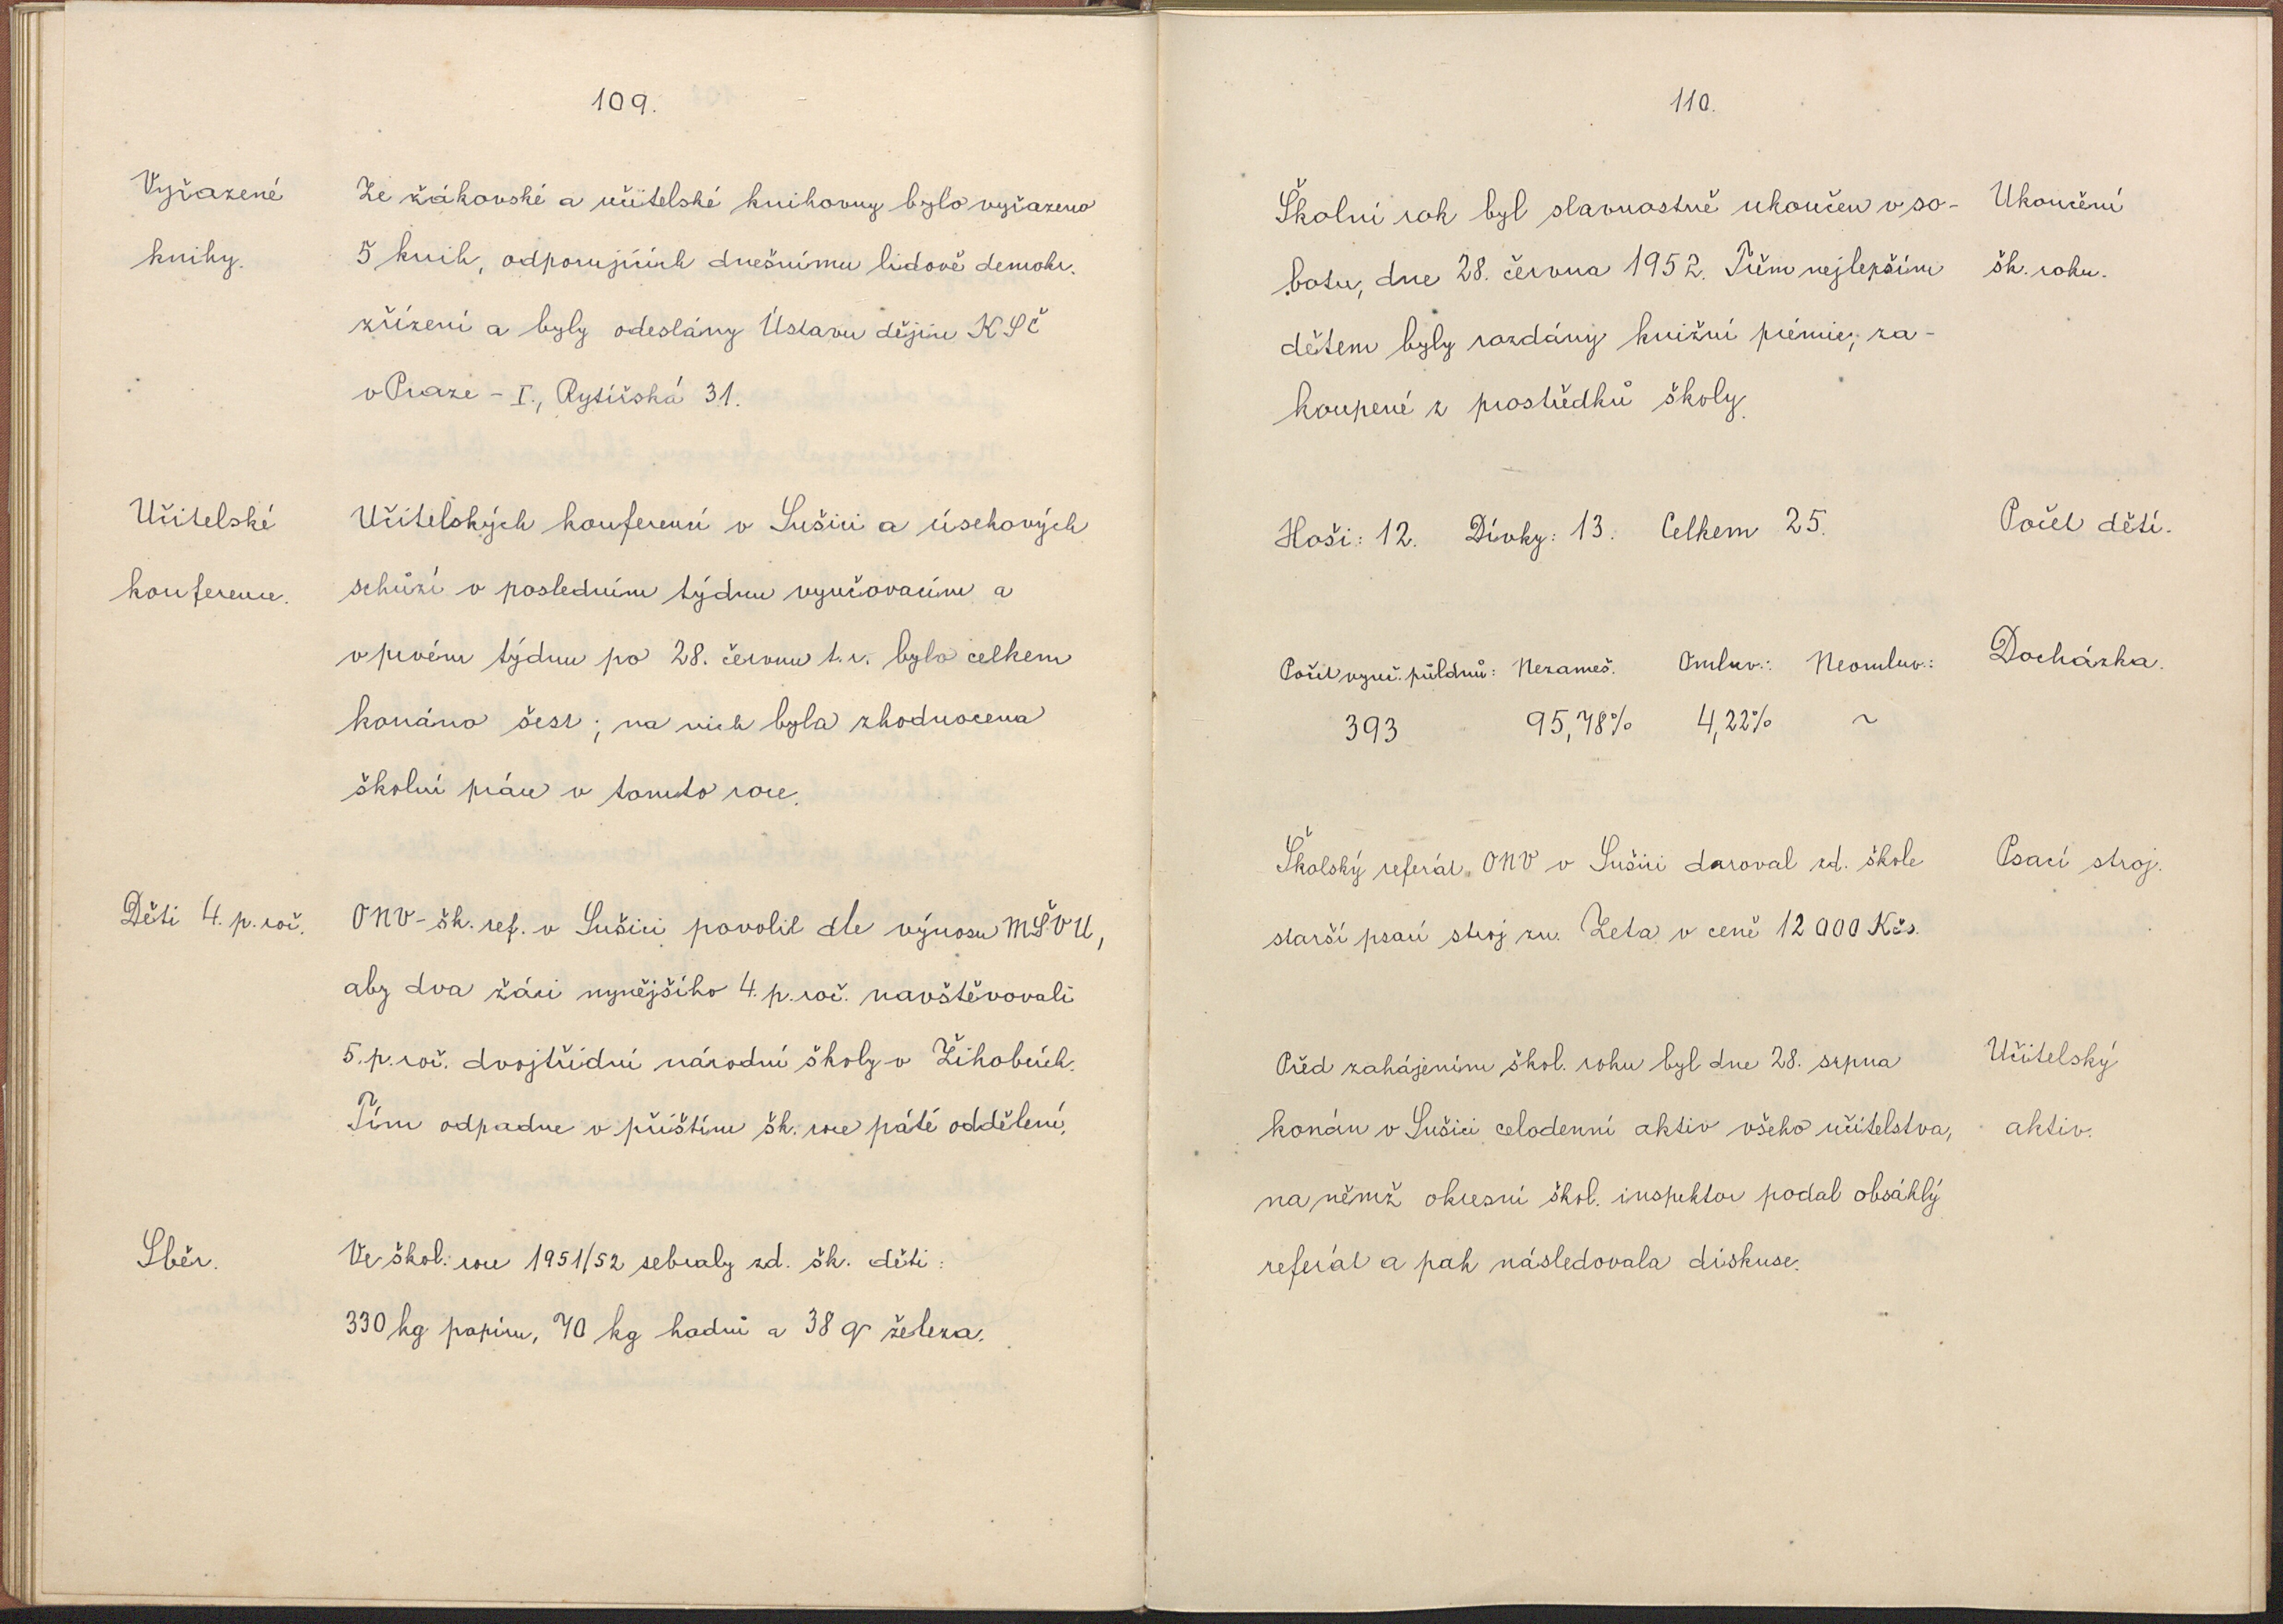 109.
Vyřazené
knihy.
Ze žákovské a učitelské knihovny bylo vyřazeno
5 knih, odporujících dnešnímu lidově demokr.
zřízení a byly odeslány Ústavu dějin KSČ
v Praze - I., Rytířská 31.
Učitelské
konference.
Učitelských konferencí v Sušici a úsekových
schůzí v posledním týdnu vyučovacím a
v prvém týdnu po 28. červnu t. r. bylo celkem
konáno šest; na nich byla zhodnocena
školní práce v tomto roce.
Děti 4. p. roč.
ONV - šk. ref. v Sušici povolil dle výnosu MŠVU,
aby dva žáci nynějšího 4. p. roč. navštěvovali
5. p. roč. dvojtřídní národní školy v Žihobcích.
Tím odpadne v příštím šk. roce páté oddělení.
Sběr.
Ve škol. roce 1951/52 sebraly zd. šk. děti:
330 kg papíru, 70 kg hadrů a 38 q železa.
110.
Školní rok byl slavnostně ukončen v so-
botu, dne 28. června 1952. Třem nejlepším
dětem byly rozdány knižní prémie, za-
koupené z prostředků školy.
Ukončení
šk. roku.
Hoši: 12. Dívky: 13. Celkem 25.
Počet dětí.
Počet vyuč. půldnů: Nezameš. Omluv.: Neomluv.:
393 95,78% 4,22% ~
Docházka.
Školský referát ONV v Sušici daroval zd. škole
starší psací stroj zn. Zeta v ceně 12 000 Kčs.
Psací stroj.
Před zahájením škol. roku byl dne 28. srpna
konán v Sušici celodenní aktiv všeho učitelstva,
na němž okresní škol. inspektor podal obsáhlý
referát a pak následovala diskuse.
Učitelský
aktiv.